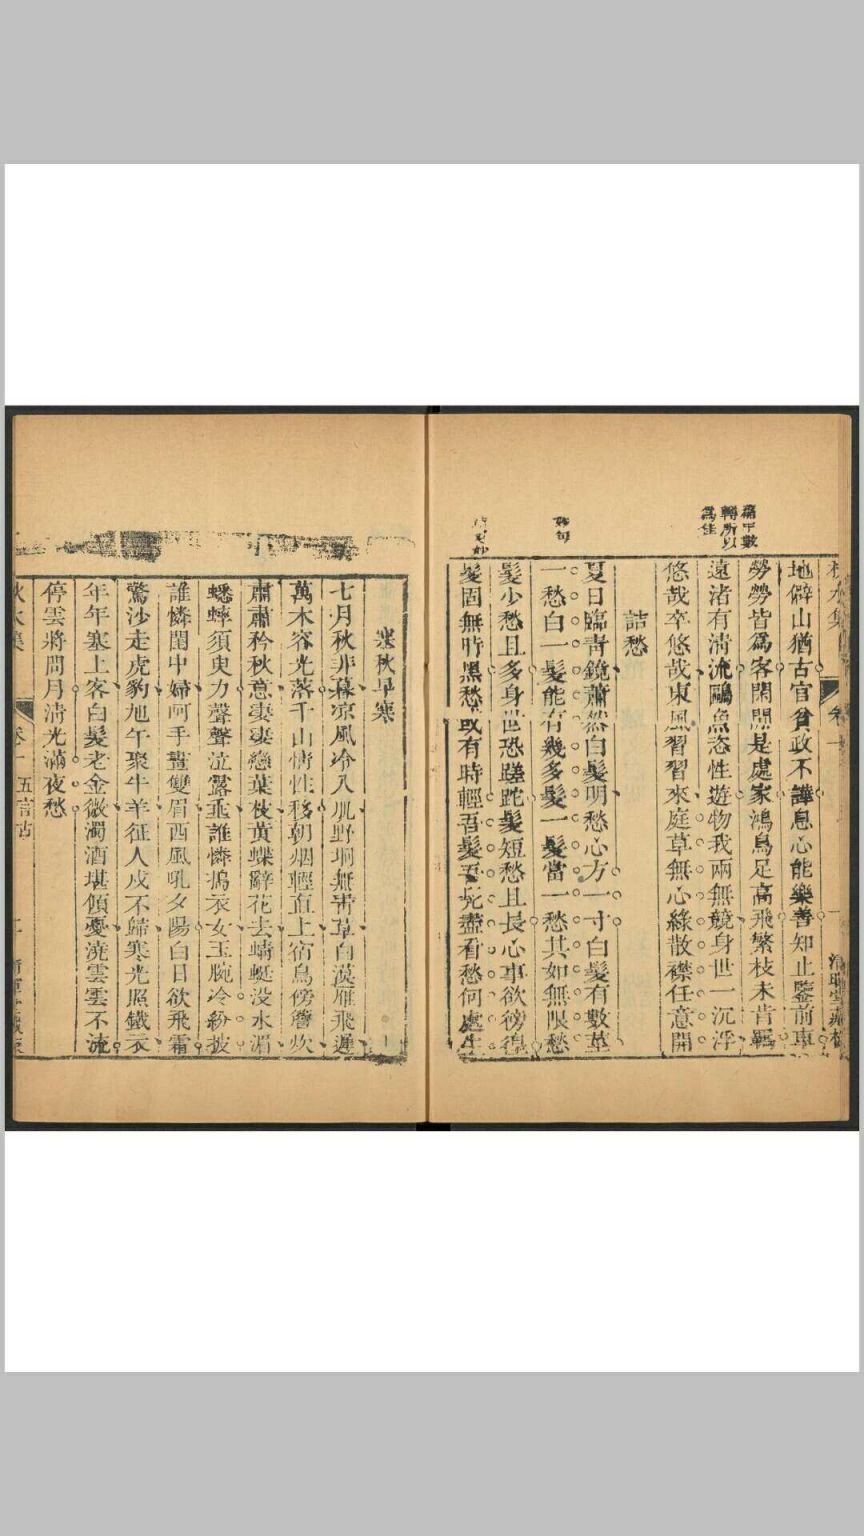 篇中數
轉所以
為佳
妙句
秋水集
卷一
地僻山猶古官貧政不譁息心能樂善知止鑒前車
勞勞皆爲客閑閑是處家鴻鳥足高飛繁枝未肯羈
遠渚有清流鷗魚恣性遊物我兩無競身世一沉浮
悠哉卒悠哉東風習習來庭草無心綠散襟任意開
詰愁
夏日臨青鏡蕭然白髮明愁心方一寸白髮有數莖
一愁白一髮能有幾多髮一髮當一愁其如無限愁
髮少愁且多身世恐蹉跎髮短愁且長心事欲徬徨
髮固無時黑愁或有時輕吾髮吾死盡看愁何處生
寒秋早寒
七月秋非暮凉風冷入肌野垌無靑草白漠雁飛遲
萬木容光落千山情性移朝烟輕直上宿鳥傍簷炊
肅肅矜秋意凄凄戀葉枝黃蝶辭花去蜻蜓没水湄
蟋蟀須臾力聲聲泣露垂誰憐搗衣女玉腕冷紛披
誰憐閨中婦呵手畫雙眉西風吼夕陽白日欲飛霜
驚沙走虎豹旭午聚牛羊征人戍不歸寒光照鐵衣
年年塞上客白髮老金微濁酒堪傾憂澆雲雲不流
停雲將問月清光滿夜愁
秋水集
卷一
五言古